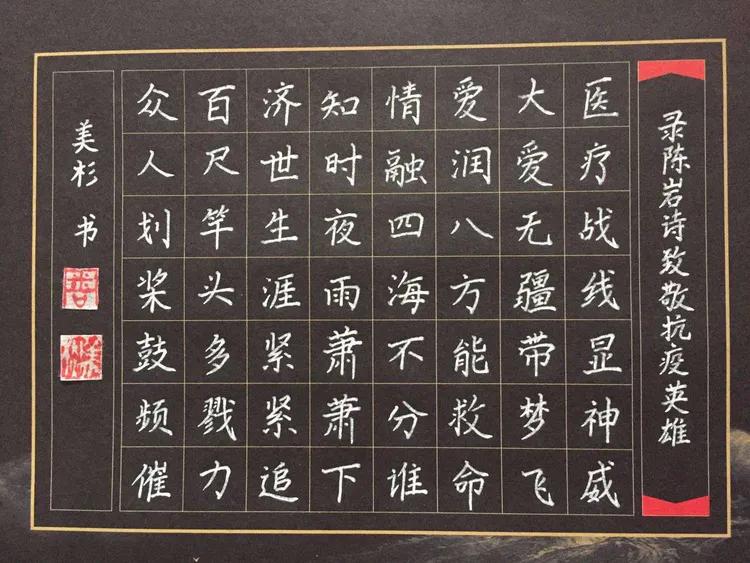 录陈岩诗致敬抗疫英雄
医疗战线显神威
大爱无疆带梦飞
爱润八方能救命
情融四海不分谁
知时夜雨萧萧下
济世生涯紧紧追
百尺竿头多戮力
众人划桨鼓频催
美杉 书